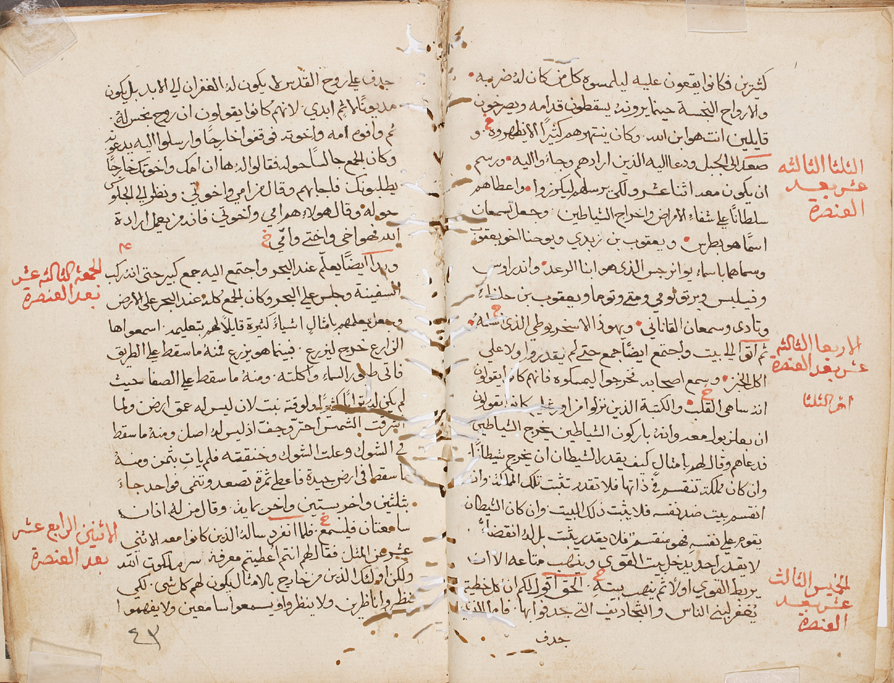 كثيرين فكانوا يقعون عليه ليلمسوه كل من كان له ضربه
والارواح النجسة حينما يرونه يسقطون قدامه ويصرخون
قايلين انت هو ابن الله وكان ينتهرهم كثيرًا الا يظهروه و
صعد الى الجبل ودعا اليه الذين ارادهم وجاوا اليه ورسم
ان يكون معه اثنا عشر ولكي يرسلهم ليكرزوا واعطاهم
سلطانًا على شفاء الامراض واخراج الشياطين وجعل لسمعان
اسمًا هو بطرس ويعقوب بن زبدي ويوحنا اخو يعقوب
وسماهما باسماء بوانرجس الذي هو ابنا الرعد واندراوس
وفيلبس وبرتولوماوس ومتى وتوما ويعقوب بن حلفا
وتادى وسمعان القاناني ويهوذا الاسخريوطي الذي
ثم اتوا الى بيت واجتمع ايضًا جمع حتى لم يقدروا ولا على
اكل الخبز وسمع اصحابه فخرجوا ليمسكوه فانهم كانوا يقولون
انه ساهي القلب والكتبة الذين نزلوا من اورشليم كانوا يقولون
ان بعلزبول معه وانه باركون الشياطين يخرج الشياطين
فدعاهم وقال لهم بامثال كيف يقدر الشيطان ان يخرج شيطانًا
وان كان مملكة تنقسم في ذاتها فلا تقدر تثبت تلك المملكة وان
انقسم بيت ضد نفسه فلا يثبت ذلك البيت وان كان الشيطان
يقوم على نفسه فهو منقسم فلا يقدر يثبت بل له انقضاء
لا يقدر احد يدخل بيت القوي وينهب متاعه الا ان
يربط القوي اولًا ثم ينهب بيته الحق اقول لكم ان كل خطية
يُغفر لبني الناس والتجاديف التي جدفوا بها فاما الذي
جدف
الثلثا الثالثه
عشر بعد
العنصرة
الاربعا الثالثه
عشر بعد العنصرة
اخر الثلثا
الخميس الثالث
عشر بعد
العنصرة
جدف على روح القدس لا يكون له الغفران الى الابد بل يكون
مديونًا لاثم ابدي لانهم كانوا يقولون ان روح نجس له
ثم وافوه امه واخوته فوقفوا خارجًا وارسلوا اليه يدعونه
وكان الجمع جالسًا حوله فقالوا له ها ان امك واخوتك خارجًا
يطلبونك فاجابهم وقال من امي واخوتي ونظر الى الجلوس
حوله وقال هولاء هم امي واخوتي فانه من يعمل ارادة
الله فهو اخي واختي وامي
وبدأ ايضًا يعلم عند البحر واجتمع اليه جمع كبير حتى انه ركب
السفينة وجلس على البحر وكان الجمع كله عند البحر على الارض
وجعل يعلمهم بامثال اشياءً كثيرة قايلًا لهم بتعليمه اسمعوا ها
الزارع خرج ليزرع فبينما هو يزرع منه ما سقط على الطريق
فاتى طير السماء واكلته ومنه ما سقط على الصفا حيث
لم يكن له ترابًا كثيرًا ولوقته نبت لان ليس له عمق ارض ولما
اشرقت الشمس احترق وجف اذ ليس له اصل ومنه ما سقط
في الشوك وعلت الشوك وخنقته فلم يات بثمن ومنه
ما سقط في ارض جيدة فاعطى ثمرة تصعد وتنمى فواحد جاء
بثلثين واخر بستين واخر بماية وقال من له اذنان
سامعتان فليسمع فلما انفرد ساله الذين كانوا معه الاثنى
عشر عن المثل فقال لهم انتم اعطيتم معرفة سر ملكوت الله
ولكن اوليك الذين من خارج بالامثال يكون لهم كل شي لكي
ينظروا ناظرين ولا ينظروا ويسمعوا سامعين ولا يفهموا
الجمعة الثالثه عشر
بعد العنصرة
الاثنين الرابع عشر
بعد العنصرة
٤٣